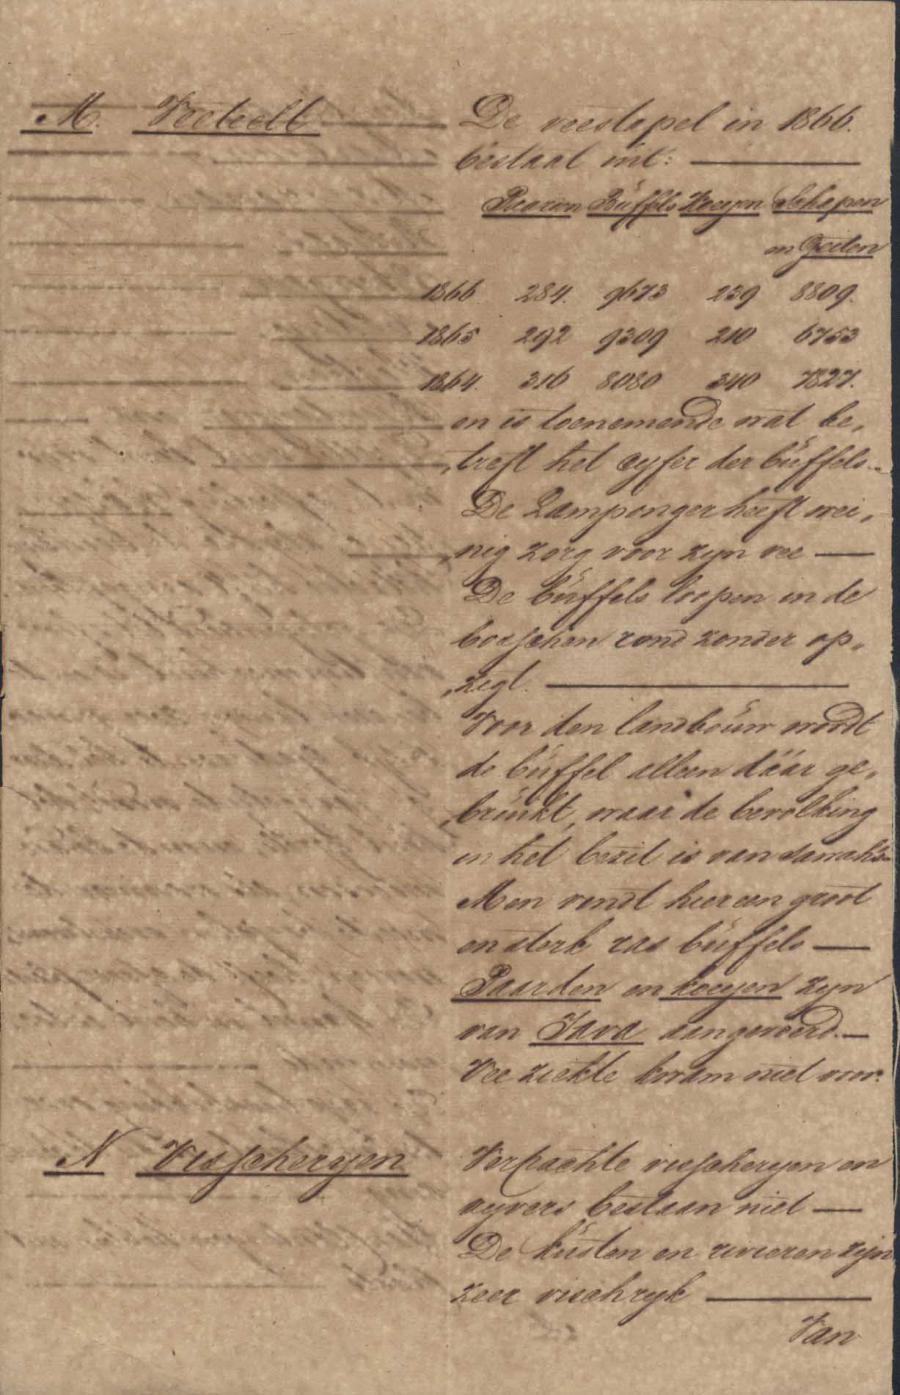 M. Veeteelt
De veestapel in 1866.
bestaat uit:
Paarden Buffels Koeyen Schapen
en Geiten
1866 284. 9673 239 8809.
1865 292 9309 210 6753
1864. 316 8080 340 7827.
en is toenemende wat be„
„treft het cyfer der buffels.
De Lamponger heeft wei„
„nig zorg voor zyn vee
De buffels loopen in de
bosschen rond zonder op„
„zigt.
Voor den landbouw wordt
de buffel alleen dáár ge„
„bruikt, waar de bevolking
in het bezit is van sawah's
Men vindt hier een groot
en sterk ras buffels
Paarden en koeyen zyn
van Java aangevoerd.
Vee ziekte kwam niet voor.
N Visscheryen
Verpachte visscheryen en
vyvers bestaan niet
De kusten en rivieren zijn
zeer vischryk
Van